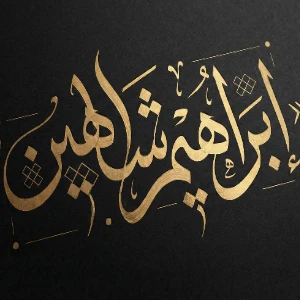 إبراهيم شاهين